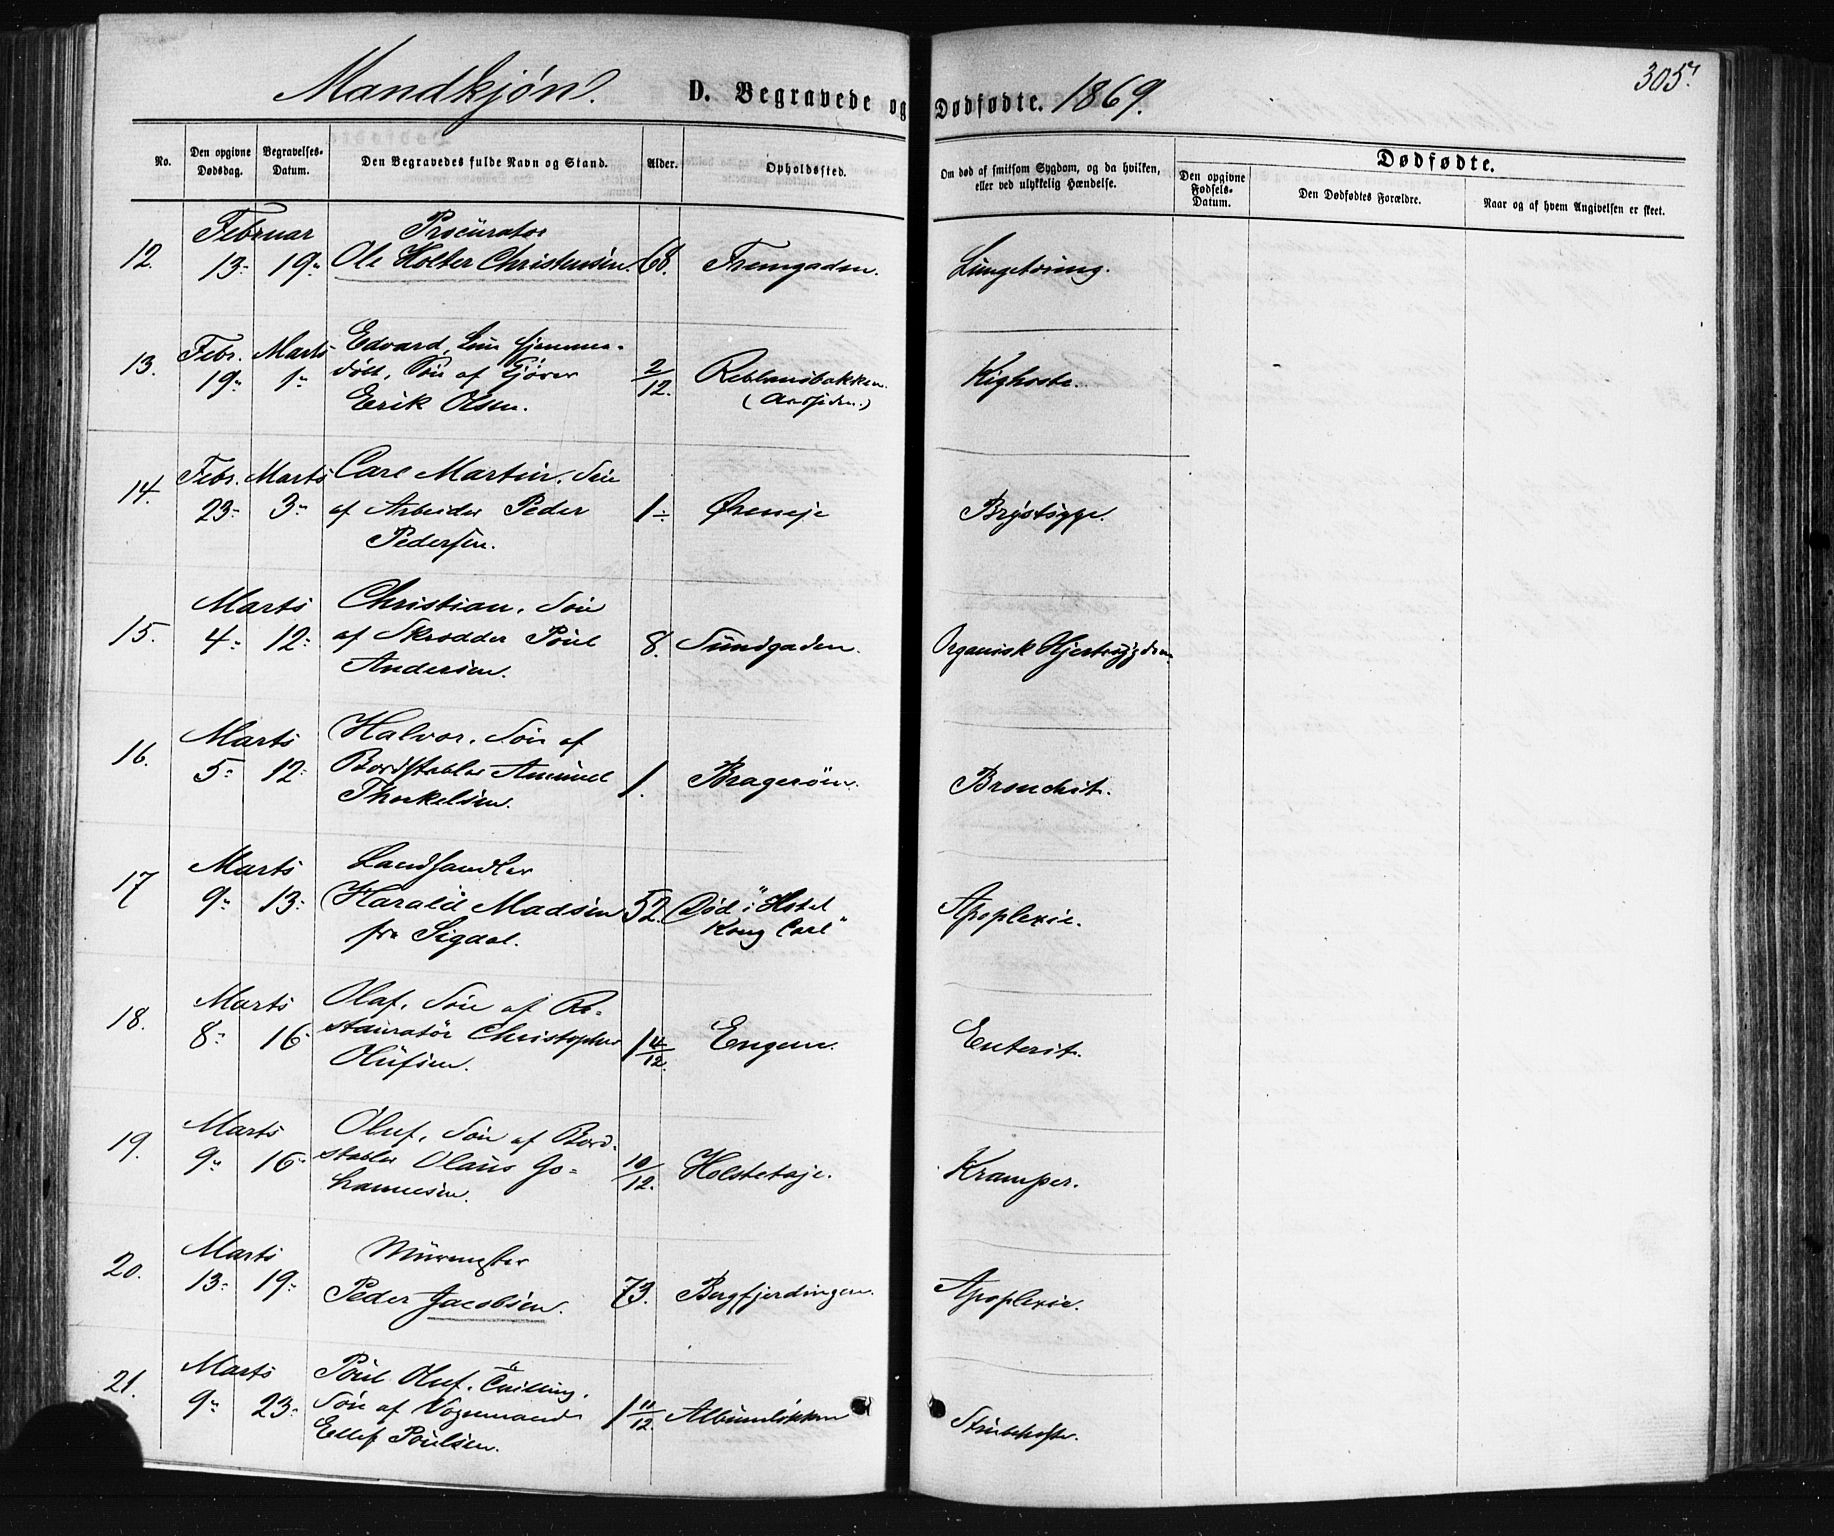 Mandkjøn. D. Begravede og Dødfødte. 1869. 305.
No.
Den opgivne Dødsdag.
Begravelses-Datum.
Den Begravedes fulde Navn og Stand.
Alder.
Opholdssted.
Om død af smitsom Sygdom, og da hvilken, eller ved ulykkelig Hændelse.
Dødfødte.
Den opgivne Fødsels-Datum.
Den Dødfødtes Forældre.
Naar og af hvem Angivelsen er skeet.
Februar Procurator
12. 13. 19. Ole Holter Christensen. 68. Tverrgaden. Lungebræng.
Febr. Marts Edvard, hjemme-
13. 19. 1. døbt, Søn af Gjører 2/12. (Aassiden.) Kighoste.
Erik Olsen.
Febr. Marts Carl Martin, Søn
14. 23. 3. af Arbeider Peder 1. Øreneje Brystsyge.
Pedersen.
Marts Christian, Søn
15. 4. 12. af Skrædder Poul 8. Sundgaden. Organisk Hjertesygdom
Andersen.
Marts Halvor, Søn af
16. 5. 12. Bordstabler Amund 1. Bragerøen. Bronchit.
Thorkelsen.
Marts Landhandler
17 9. 13. Harald Madsen 52. Død i "Hotel Apoplexie.
fra Sigdal. Kong Carl"
Marts Olaf, Søn af Re-
18. 8. 16. stauratør Christopher 1 4/12. Engene. Enterit.
Olufsen.
Marts Oluf, Søn af Bord-
19. 9. 16. stabler Olaus Jo- 10/12. Holstetøje. Kramper.
hannesen.
Marts Muurmester
20. 13. 19. Peder Jacobsen. 73. Bergfjerdingen. Apoplexie.
Marts Poul Oluf, Tvilling,
21. 9. 23. Søn af Vognmand 1 11/12. Albumløkken Strubehoste.
Ellef Poulsen.